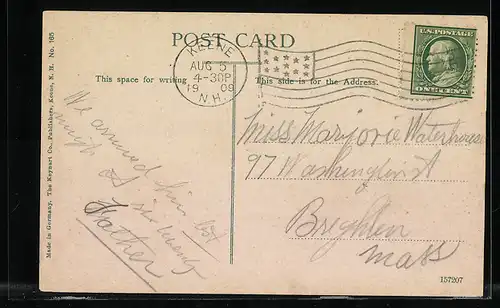 POST CARD
KEENE
AUG 5
4-30P
1909
N.H.
U.S. POSTAGE
ONE CENT
This space for writing
This side is for the Address.
We arrived
Father
Miss Marjorie Waterhouse
97 Washington St
Brighton
Mass
Made in Germany. The Keynart Co., Publishers, Keene, N. H. No. 165
157207